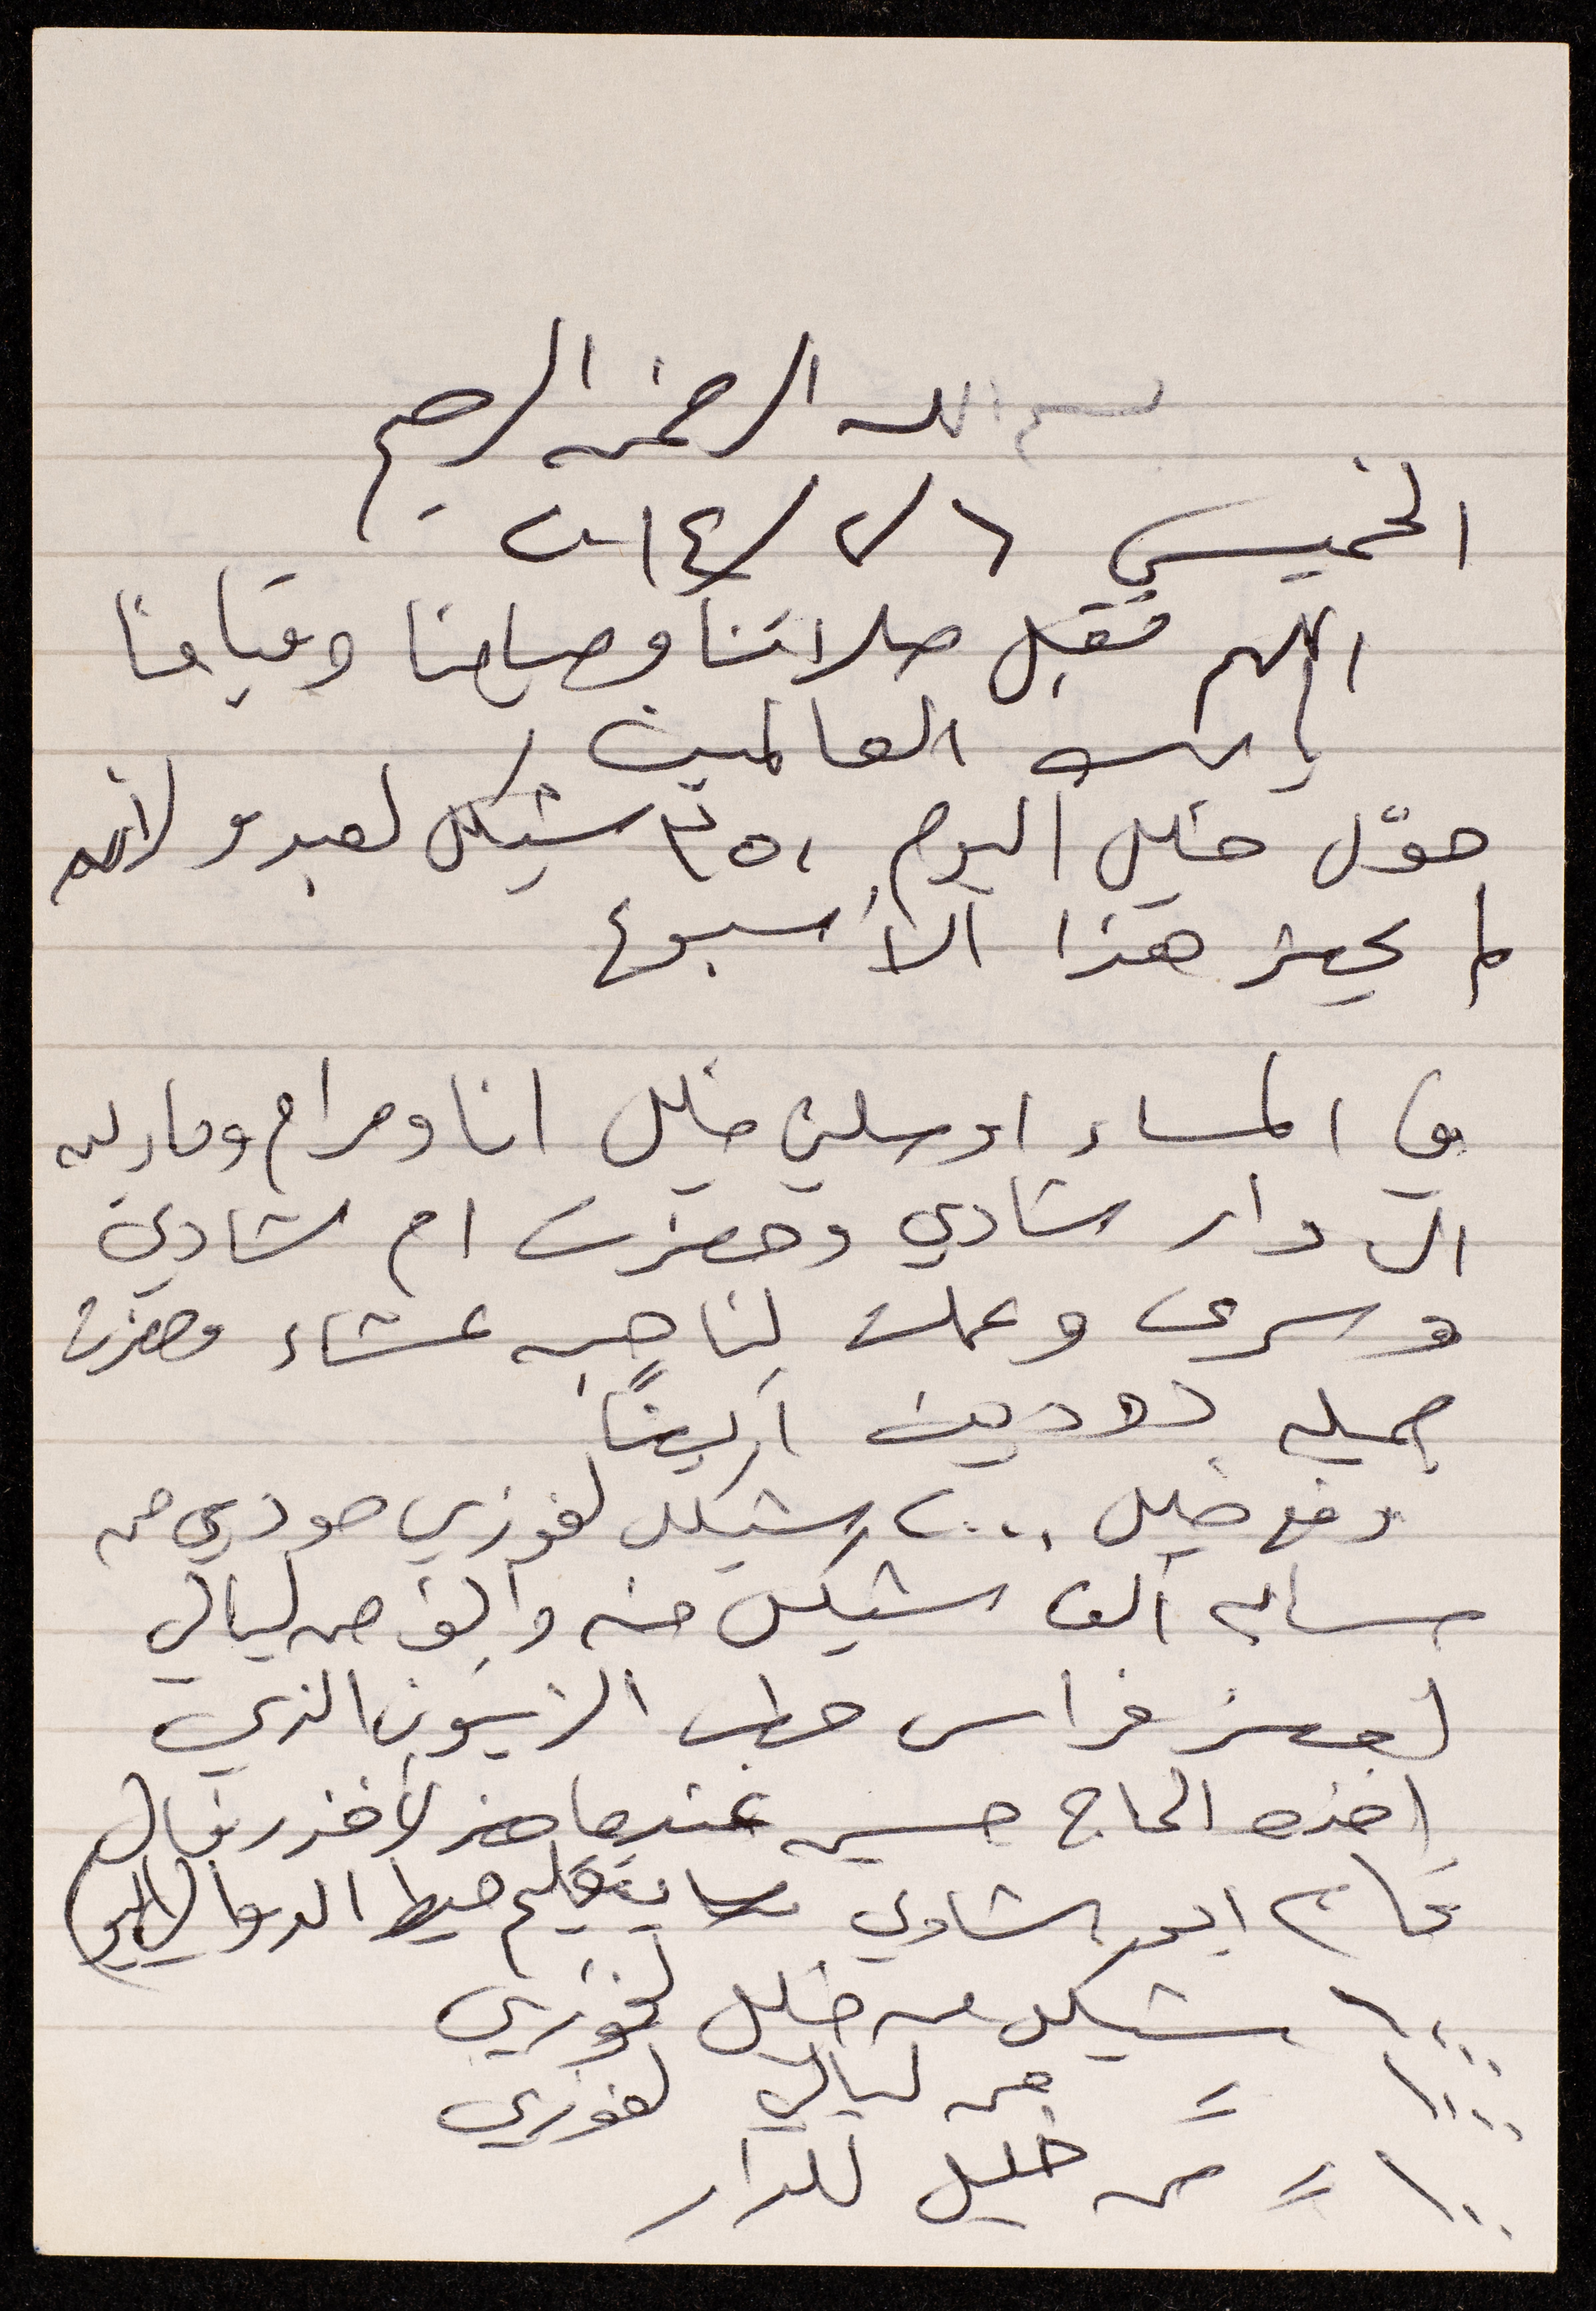 بسم الله الرحمن الرحيم
الخميس ٦/٢/٢٠١٤
اللهم تقبل صلاتنا وصيامنا وقيامنا
يا رب العالمين
حوّل خليل اليوم ٣٥٠ شيكل لعبد و لأنه
لم يحضر هذا الأسبوع
في المساء اوصلني خليل انا ومرام ومارلين
الى دار شادي وحضرت ام شادي
وسرى وعملت لنا جبه عشاء وحضرت
جميله بدوين أيضًا
دفع خليل ٢٠٠٠ شيكل لفوزي جودي من
حسابه ألف شيكل منه وألف من ليالي
احضر فراس حطب الزيتون الذي
اخذه الحاج حسين عندما حضر لأخذ رنفال
قام ابو شادي بتقليم حيط الدوالي اليوم
١٠٠٠ شيكل من خليل لفوزي
١٠٠٠ = من ليالي لفوزي
١٠٠ = من خليل للدار